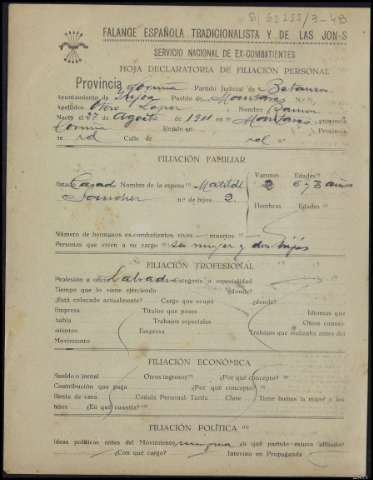 FALANGE ESPAÑOLA TRADICIONALISTA Y DE LAS JON-S
SERVICIO NACIONAL DE EX-COMBATIENTES
HOJA DECLARATORIA DE FILIACIÓN PERSONAL
Provincia Coruña Partido Judicial de Betanzos
Ayuntamiento de Irijoa Pueblo de
Apellidos Otero Lopez Nombre Ramon
Nació el 27 de Agosto de 1911 en provincia
Coruña Provincia
Calle de
FILIACIÓN FAMILIAR
Varones Edades
Casad Nombre de la esposa Matilde 2 6 y 3 años
n.º de hijos 2 Hembras Edades
Número de hermanos ex-combatientes vivos muertos
Personas que viven a su cargo Su mujer y dos hijos
FILIACIÓN PROFESIONAL
Profesión u oficio Labrad categoría o especialidad
Tiempo que lo viene ejerciendo ¿donde?
¿Está colocado actualmente? Cargo que ocupa ¿donde?
Empresa Títulos que posee Idiomas que
habla Trabajos especiales Otros conoci-
mientos Empresa Trabajos que realizaba antes del
Movimiento
FILIACIÓN ECONÓMICA
Sueldo o jornal Otros ingresos ¿Por qué concepto?
Contribución que paga ¿Por qué concepto?
Renta de casa Cédula Personal-Tarifa Clase Tiene bienes la mujer y los
hijos ¿En qué cuantía?
FILIACIÓN POLÍTICA
Ideas políticas antes del Movimiento ninguna ¿a qué partido estuvo afiliado?
¿Con qué cargo? Intervino en Propaganda